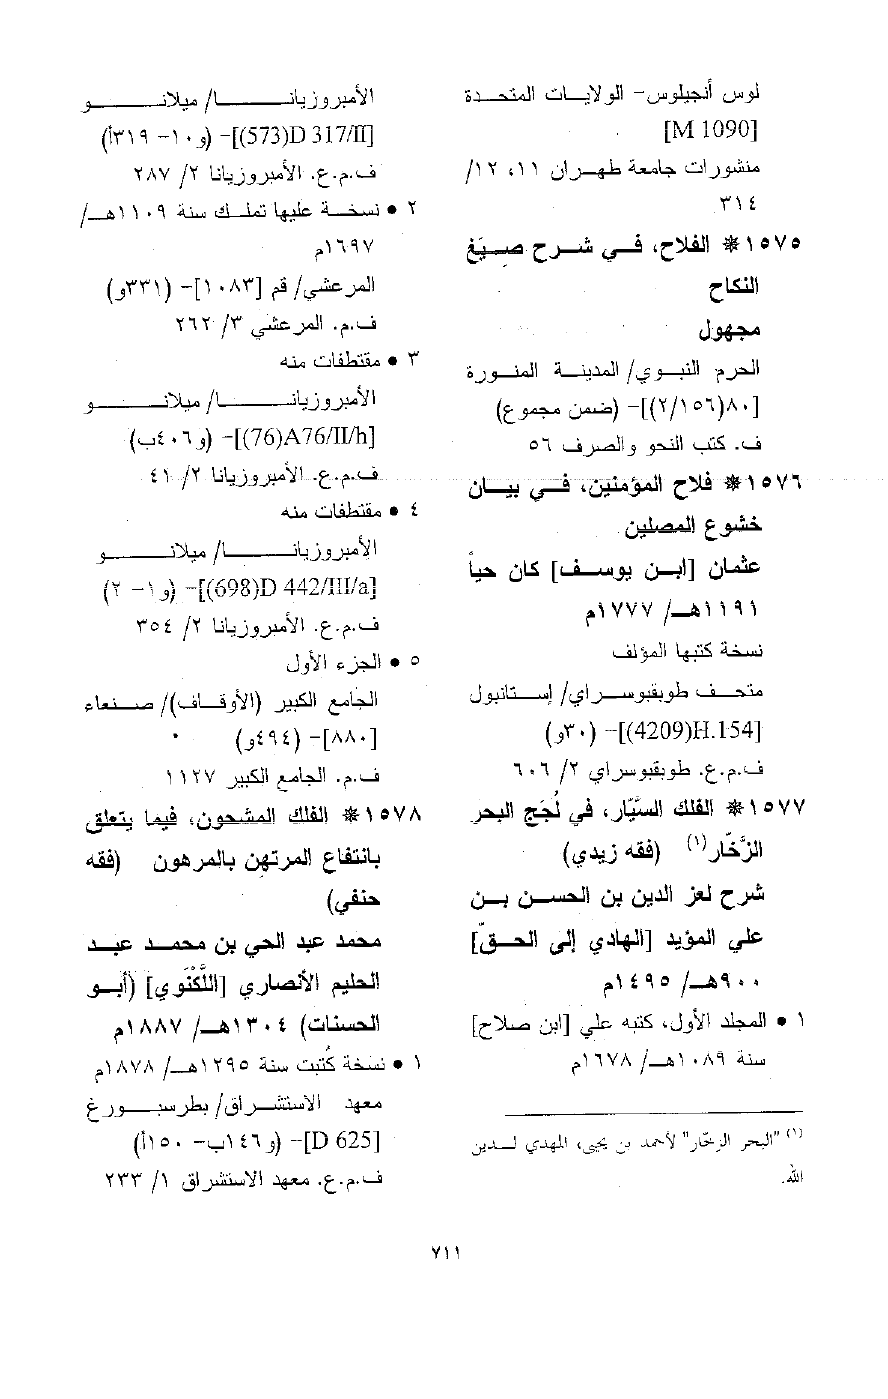 لوس أنجيلوس- الولايات المتحدة
[M 1090]
منشورات جامعة طهران ١١، ١٢/
٣١٤
١٥٧٥* الفلاح، في شرح صِيَغ
النكاح
مجهول
الحرم النبوي/ المدينة المنورة
[٨٠(٢/١٥٦)]- (ضمن مجموع)
ف. كتب النحو والصرف ٥٦
١٥٧٦* فلاح المؤمنين، في بيان
خشوع المصلين
عثمان [ابن يوسف] كان حياً
١١٩١هـ/ ١٧٧٧م
نسخة كتبها المؤلف
متحف طوبقبوسراي/ إستانبول
[4209)H.154)]- (٣٠و)
ف.م.ع. طوبقبوسراي ٢/ ٦٠٦
١٥٧٧* الفلك السَّيَّار، في لُجَج البحر
الزَّخّار(١) (فقه زيدي)
شرح لعز الدين بن الحسن بن
علي المؤيد [الهادي إلى الحقّ]
٩٠٠هـ/ ١٤٩٥م
١ • المجلد الأول، كتبه علي [ابن صلاح]
سنة ١٠٨٩هـ/ ١٦٧٨م
(١) "البحر الزخّار" لأحمد بن يحيى، المهدي لدين
الله.
الأمبروزيانا/ ميلانو
[573)D 317/II)]- (و١٠- ٣١٩أ)
ف.م.ع. الأمبروزيانا ٢/ ٢٨٧
٢ • نسخة عليها تملك سنة ١١٠٩هـ/
١٦٩٧م
المرعشي/ قم [١٠٨٣]- (٣٣١و)
ف.م. المرعشي ٣/ ٢٦٢
٣ • مقتطفات منه
الأمبروزيانا/ ميلانو
[76)A76/II/h)]- (و٤٠٦ب)
ف.م.ع. الأمبروزيانا ٢/ ٤١
٤ • مقتطفات منه
الأمبروزيانا/ ميلانو
[698)D 442/III/a)]- (و١- ٢)
ف.م.ع. الأمبروزيانا ٢/ ٣٥٤
٥ • الجزء الأول
الجامع الكبير (الأوقاف)/ صنعاء
[٨٨٠]- (٤٩٤و)
ف.م. الجامع الكبير ١١٢٧
١٥٧٨* الفلك المشحون، فيما يتعلق
بانتفاع المرتهن بالمرهون (فقه
حنفي)
محمد عبد الحي بن محمد عبد
الحليم الأنصاري [اللَّكْنَوي] (أبو
الحسنات) ١٣٠٤هـ/ ١٨٨٧م
١ • نسخة كُتبت سنة ١٢٩٥هـ/ ١٨٧٨م
معهد الاستشراق/ بطرسبورغ
[D 625]- (و١٤٦ب- ١٥٠أ)
ف.م.ع. معهد الاستشراق ١/ ٢٣٣
٧١١